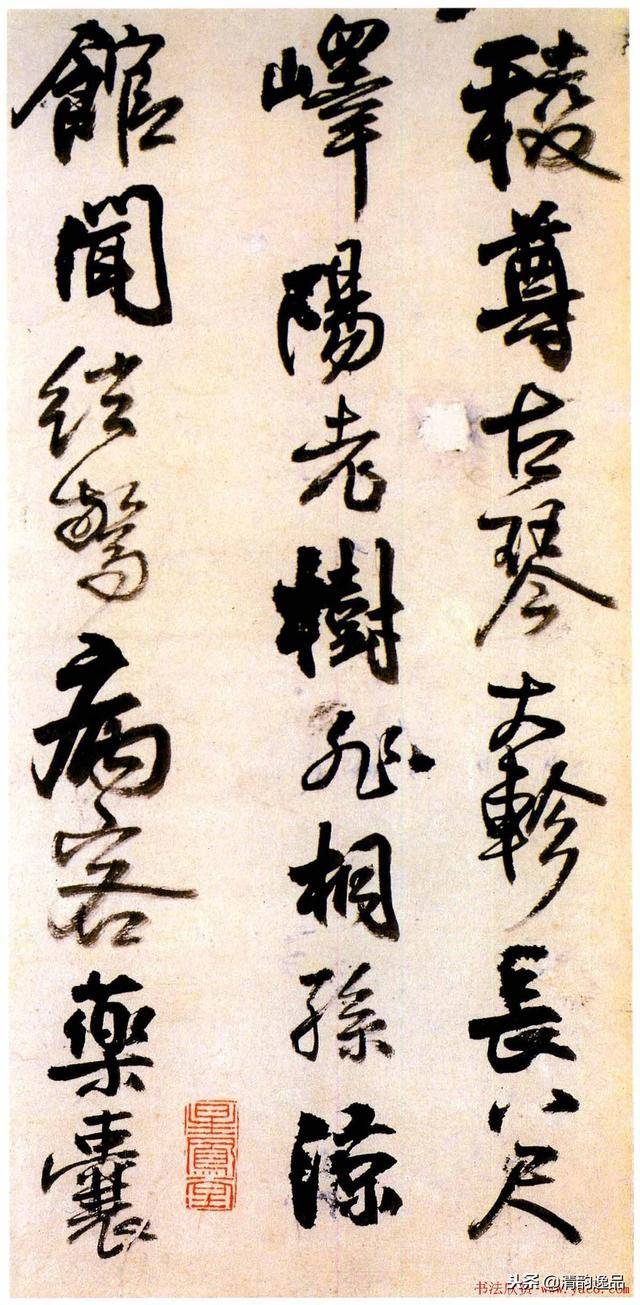 稜尊古琴大軫長八尺
嶧陽老樹非桐孫涼
館聞絃驚病客藥囊
头条@清韵逸品
书法欣赏 www.yac8.com